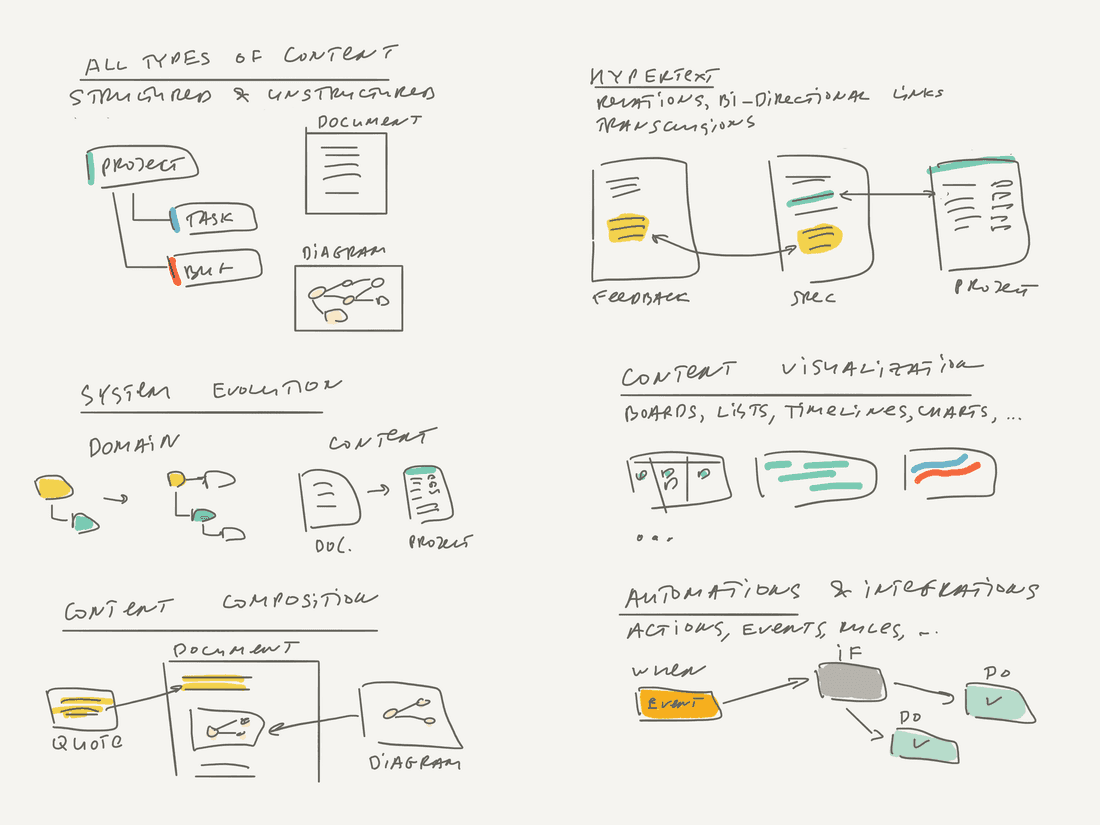 ALL TYPES OF CONTENT
STRUCTURED & UNSTRUCTURED
PROJECT
TASK
BUG
DOCUMENT
DIAGRAM
HYPERTEXT
RELATIONS, BI-DIRECTIONAL LINKS
TRANSCLUSIONS
FEEDBACK
SPEC
PROJECT
SYSTEM EVOLUTION
DOMAIN
CONTENT
DOC.
PROJECT
CONTENT VISUALIZATION
BOARDS, LISTS, TIMELINES, CHARTS, ...
...
CONTENT COMPOSITION
DOCUMENT
QUOTE
DIAGRAM
AUTOMATIONS & INTEGRATIONS
ACTIONS, EVENTS, RULES, ...
WHEN
EVENT
IF
DO
DO